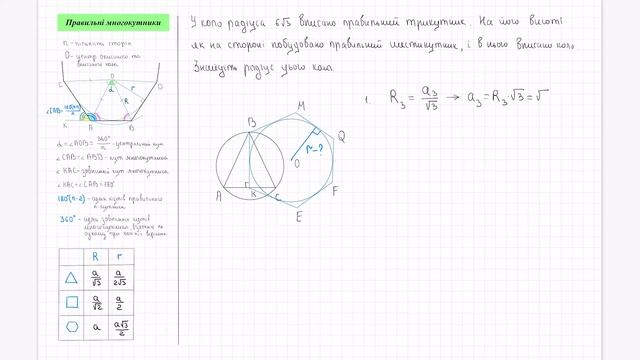 Правильні многокутники
n - кількість сторін
O - центр описаного та
вписаного кола.
O
α
r
R
C
D
K
A
B
∠α = ∠AOB = 360°/n - центральний кут
∠CAB = ∠ABD - кут многокутника
∠KAC - зовнішній кут многокутника
∠KAC + ∠CAB = 180°
180°(n-2) - сума кутів правильного
n-кутника
360° - сума зовнішніх кутів
многокутника, взятих по
одному при кожній вершині
R r
a/√3 a/2√3
a/√2 a/2
a a√3/2
У коло радіуса 6√3 вписано правильний трикутник. На його висоті
як на стороні побудовано правильний шестикутник, і в нього вписано коло
Знайдіть радіус цього кола.
1. R₃ = a₃/√3 → a₃ = R₃·√3 = √
M
B
Q
r-?
O
A
K
C
F
E